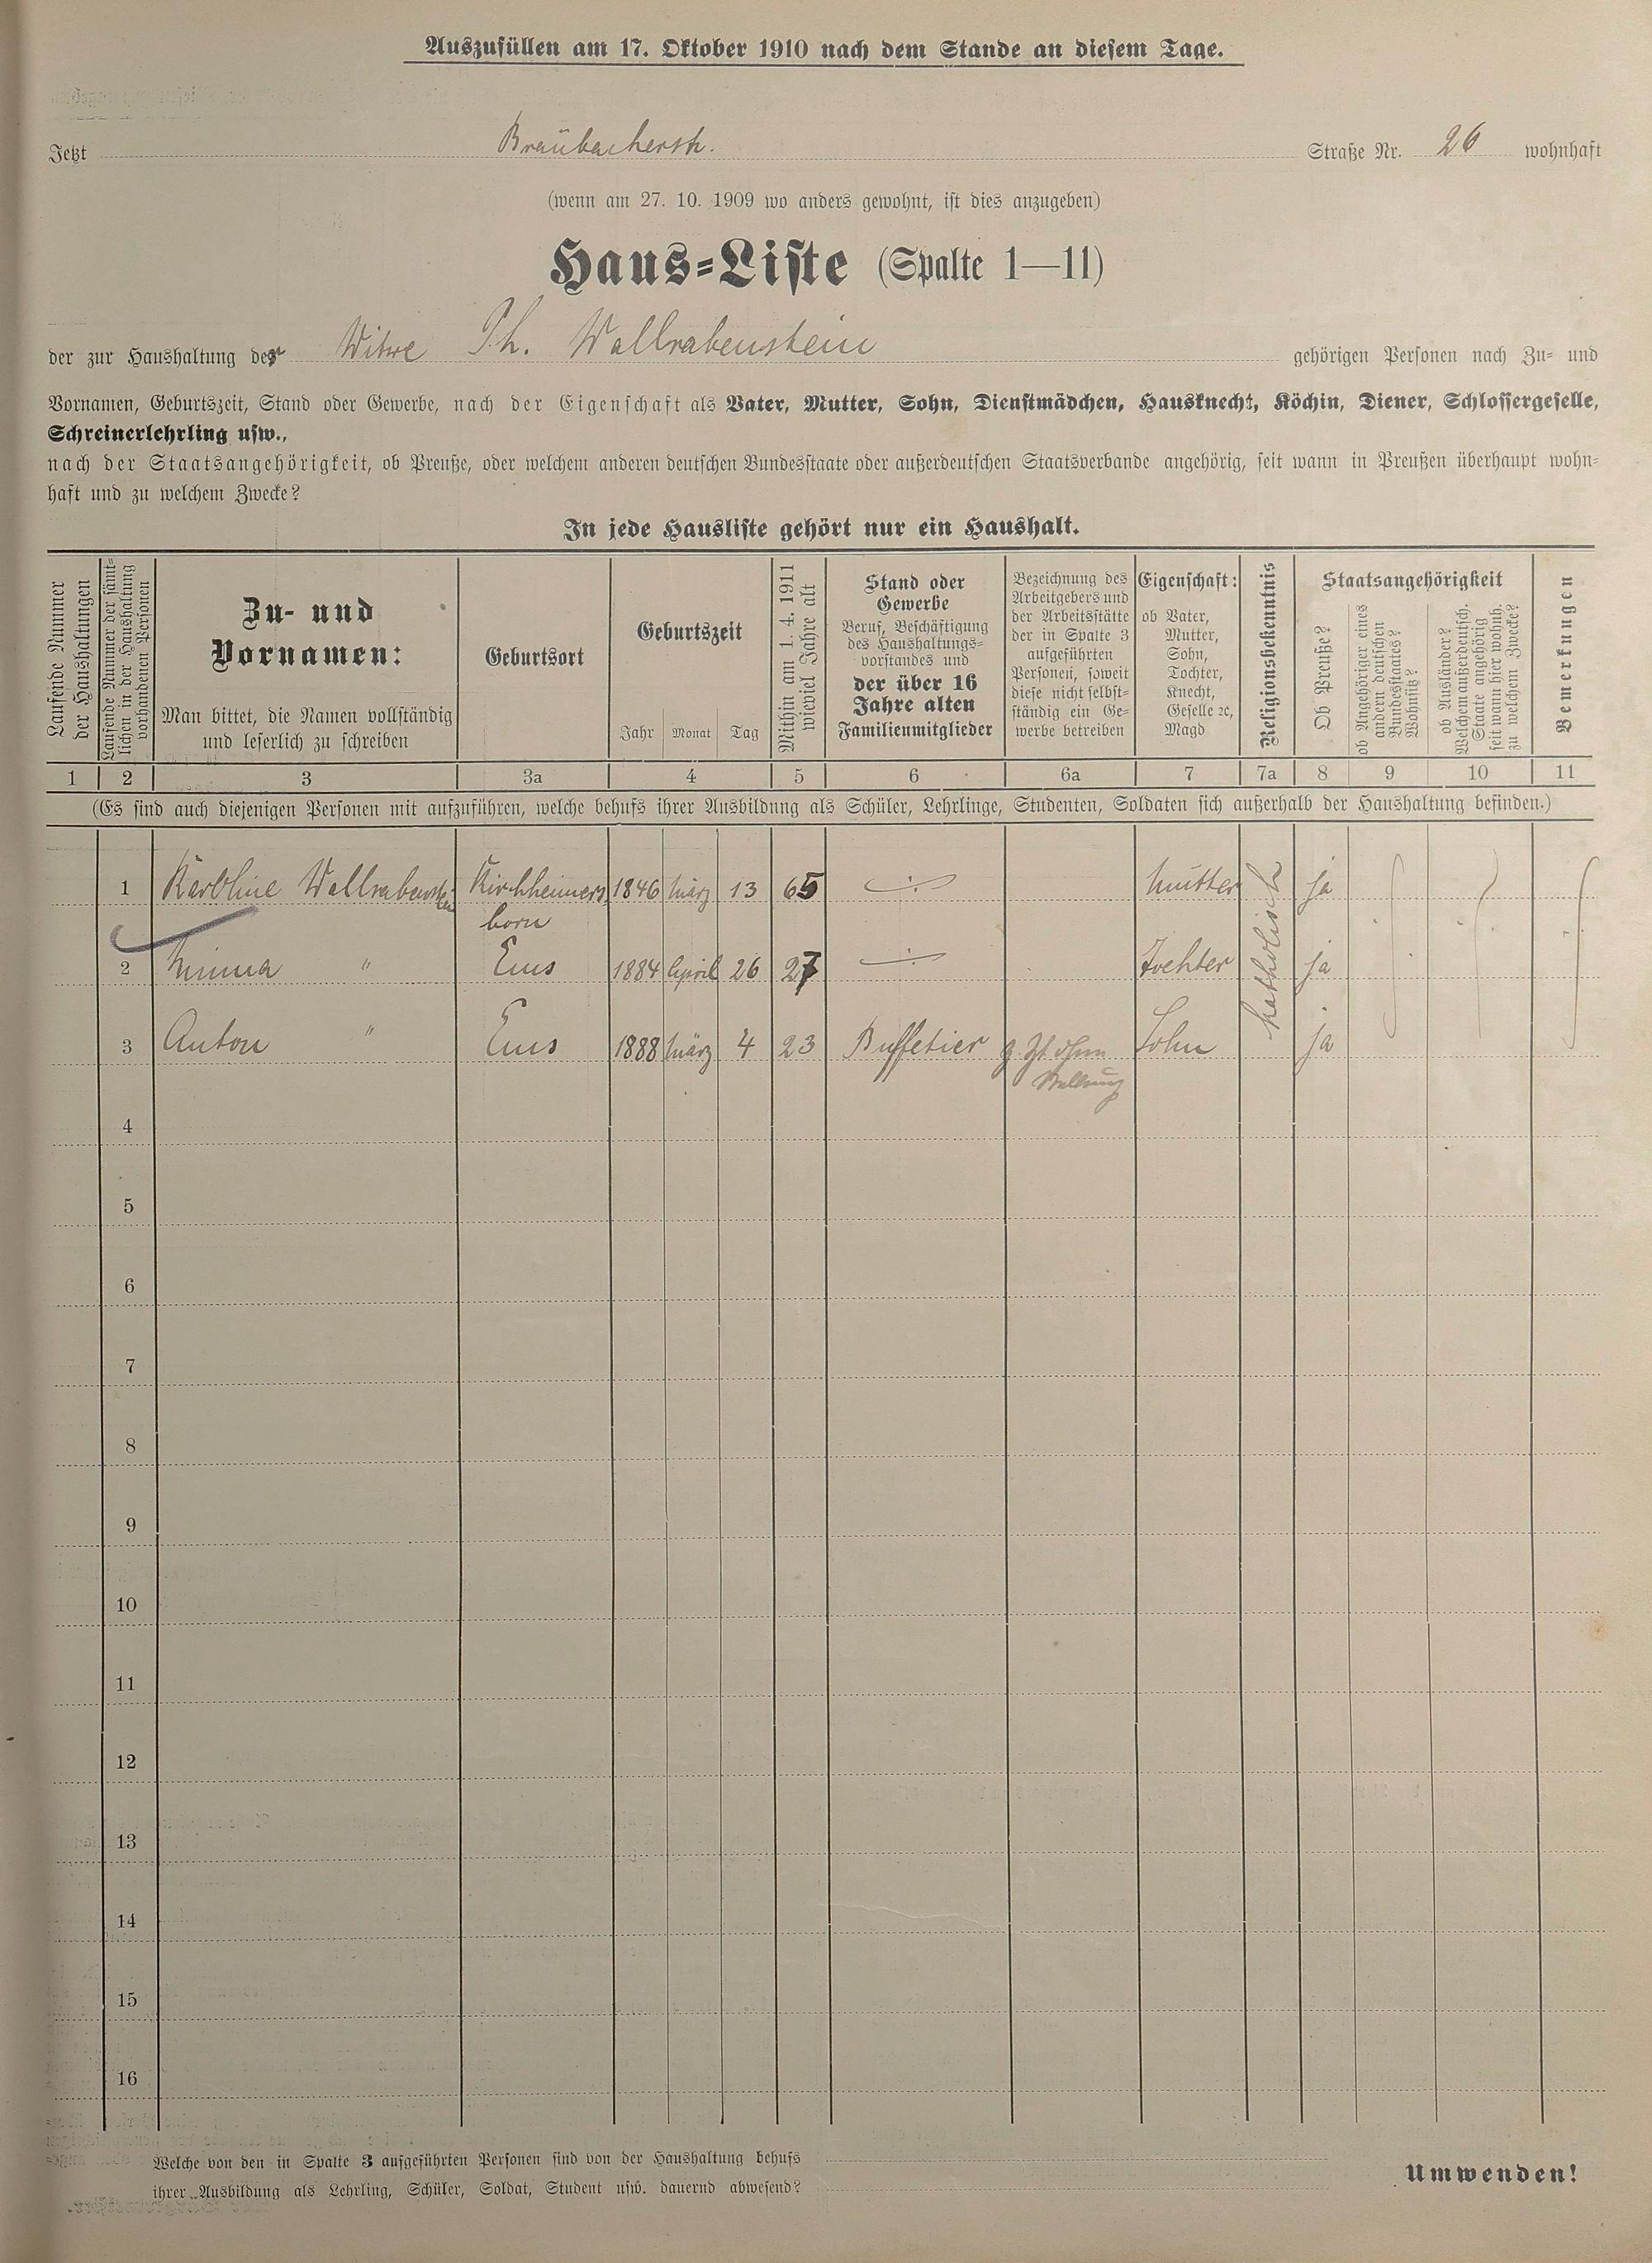 Auszufüllen am 17. Oktober 1910 nach dem Stande an diesem Tage.
Jetzt Braubacherstr. Straße Nr. 26 wohnhaft
(wenn am 27. 10. 1909 wo anders gewohnt, ist dies anzugeben)
Haus-Liste (Spalte 1—11)
der zur Haushaltung der Witwe Ph. Wallrabenstein gehörigen Personen nach Zu- und
Vornamen, Geburtszeit, Stand oder Gewerbe, nach der Eigenschaft als Vater, Mutter, Sohn, Dienstmädchen, Hausknecht, Köchin, Diener, Schlossergeselle,
Schreinerlehrling usw.,
nach der Staatsangehörigkeit, ob Preuße, oder welchem anderen deutschen Bundesstaate oder außerdeutschen Staatsverbande angehörig, seit wann in Preußen überhaupt wohn-
haft und zu welchem Zwecke?
In jede Hausliste gehört nur ein Haushalt.
Laufende Nummer
der Haushaltungen
Laufende Nummer der sämt-
lichen in der Haushaltung
vorhandenen Personen
Zu- und
Vornamen:
Man bittet, die Namen vollständig
und leserlich zu schreiben
Geburtsort
Geburtszeit
Jahr Monat Tag
Mithin am 1. 4. 1911
wieviel Jahre alt
Stand oder
Gewerbe
Beruf, Beschäftigung
des Haushaltungs-
vorstandes und
der über 16
Jahre alten
Familienmitglieder
Bezeichnung des
Arbeitgebers und
der Arbeitsstätte
der in Spalte 3
aufgeführten
Personen, soweit
diese nicht selbst-
ständig ein Ge-
werbe betreiben
Eigenschaft:
ob Vater,
Mutter,
Sohn,
Tochter,
Knecht,
Geselle ꝛc,
Magd
Religionsbekenntnis
Staatsangehörigkeit
Ob Preuße?
ob Angehöriger eines
andern deutschen
Bundesstaates?
Wohnsitz?
ob Ausländer?
Welchem außerdeutsch.
Staate angehörig
seit wann hier wohnh.
zu welchem Zwecke?
Bemerkungen
1 2 3 3a 4 5 6 6a 7 7a 8 9 10 11
(Es sind auch diejenigen Personen mit aufzuführen, welche behufs ihrer Ausbildung als Schüler, Lehrlinge, Studenten, Soldaten sich außerhalb der Haushaltung befinden.)
1 Karoline Wallrabenstein Kirchheimers- 1846 März 13 65 Mutter katholisch ja
born
2 Minna " Ems 1884 April 26 27 Tochter ja
3 Anton " Ems 1888 März 4 23 Buffetier z. Zt ohne Sohn ja
Stellung
4
5
6
7
8
9
10
11
12
13
14
15
16
Welche von den in Spalte 3 aufgeführten Personen sind von der Haushaltung behufs
ihrer Ausbildung als Lehrling, Schüler, Soldat, Student usw. dauernd abwesend?
Umwenden!